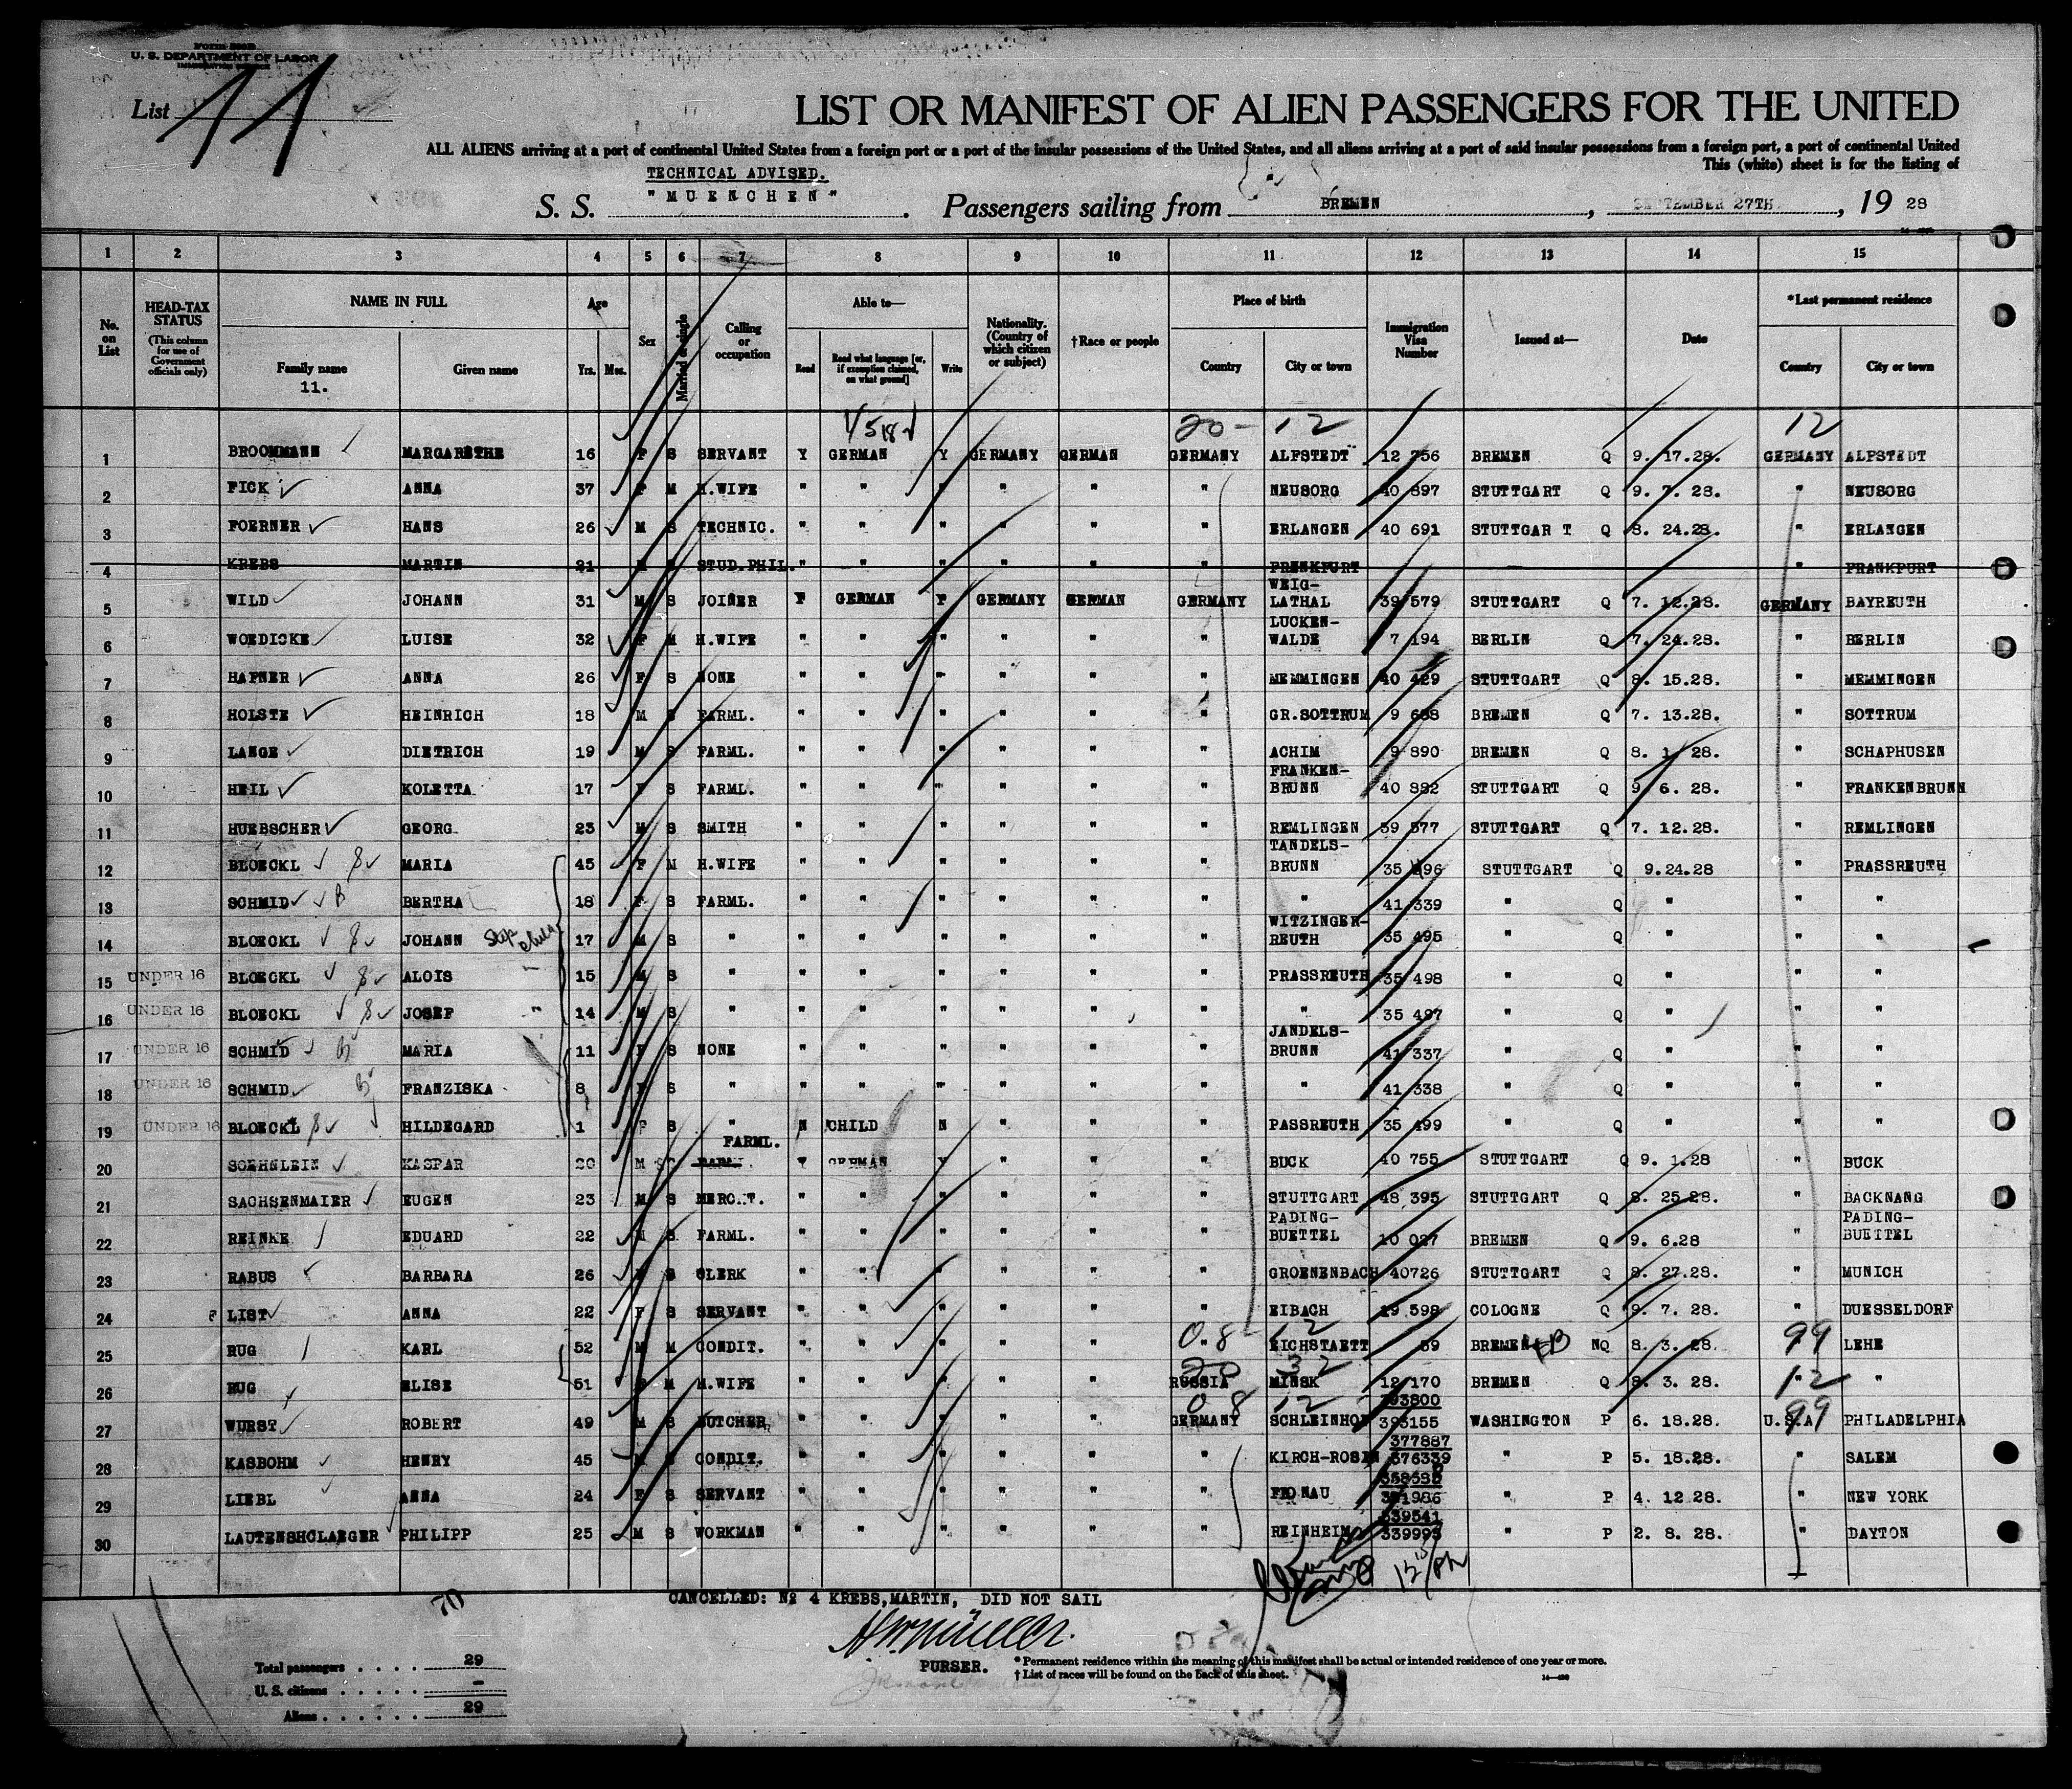 U. S. DEPARTMENT OF LABOR
List 11
LIST OR MANIFEST OF ALIEN PASSENGERS FOR THE UNITED
ALL ALIENS arriving at a port of continental United States from a foreign port or a port of the insular possessions of the United States, and all aliens arriving at a port of said insular possessions from a foreign port, a port of continental United
This (white) sheet is for the listing of
TECHNICAL ADVISED.
S. S. "MUENCHEN". Passengers sailing from BREMEN, SEPTEMBER 27TH, 19 28
1 2 3 4 5 6 7 8 9 10 11 12 13 14 15
No. on List
HEAD-TAX STATUS (This column for use of Government officials only)
NAME IN FULL Family name 11. Given name
Age Yrs. Mos.
Sex
Married or single
Calling or occupation
Able to— Read Read what language [or, if exemption claimed, on what ground] Write
Nationality. (Country of which citizen or subject)
†Race or people
Place of birth Country City or town
Immigration Visa Number
Issued at—
Date
*Last permanent residence Country City or town
20- 12 12
1 BROOMMANN MARGARETHE 16 F S SERVANT Y GERMAN Y GERMANY GERMAN GERMANY ALFSTEDT 12 756 BREMEN Q 9. 17.28. GERMANY ALFSTEDT
2 FICK ANNA 37 F M H.WIFE " " " " " " NEUSORG 40 897 STUTTGART Q 9. 7. 28. " NEUSORG
3 FOERNER HANS 26 M S TECHNIC. " " " " " " ERLANGEN 40 691 STUTTGAR T Q 8. 24.28. " ERLANGEN
4 KREBS MARTIN 21 M S STUD.PHIL. " " " " " " FRANKFURT " FRANKFURT
5 WILD JOHANN 31 M S JOINER Y GERMAN Y GERMANY GERMAN GERMANY WEIG-LATHAL 39 579 STUTTGART Q 7. 12.28. GERMANY BAYREUTH
6 WOEDICKE LUISE 32 F M H.WIFE " " " " " " LUCKEN-WALDE 7 194 BERLIN Q 7. 24.28. " BERLIN
7 HAFNER ANNA 26 F S NONE " " " " " " MEMMINGEN 40 429 STUTTGART Q 8. 15.28. " MEMMINGEN
8 HOLSTE HEINRICH 18 M S FARML. " " " " " " GR.SOTTRUM 9 688 BREMEN Q 7. 13.28. " SOTTRUM
9 LANGE DIETRICH 19 M S FARML. " " " " " " ACHIM 9 890 BREMEN Q 8. 1. 28. " SCHAPHUSEN
10 HEIL KOLETTA 17 F S FARML. " " " " " " FRANKEN-BRUNN 40 882 STUTTGART Q 9. 6. 28. " FRANKENBRUNN
11 HUEBSCHER GEORG 23 M S SMITH " " " " " " REMLINGEN 39 577 STUTTGART Q 7. 12.28. " REMLINGEN
12 BLOECKL MARIA 45 F M H.WIFE " " " " " " TANDELS-BRUNN 35 496 STUTTGART Q 9.24.28 " PRASSREUTH
13 SCHMID BERTHA 18 F S FARML. " " " " " " " 41 339 " Q " " "
14 BLOECKL JOHANN Step child 17 M S " " " " " " " WITZINGER-REUTH 35 495 " Q " " "
15 UNDER 16 BLOECKL ALOIS 15 M S " " " " " " " PRASSREUTH 35 498 " Q " " "
16 UNDER 16 BLOECKL JOSEF " 14 M S " " " " " " " " 35 497 " Q " " "
17 UNDER 16 SCHMID MARIA 11 F S NONE " " " " " " JANDELS-BRUNN 41 337 " Q " " "
18 UNDER 16 SCHMID FRANZISKA 8 F S " " " " " " " " 41 338 " Q " " "
19 UNDER 16 BLOECKL HILDEGARD 1 F S " N CHILD N " " " PASSREUTH 35 499 " Q " " "
20 SOEHNLEIN KASPAR 20 M S FARML. Y GERMAN Y " " " BUCK 40 755 STUTTGART Q 9. 1.28 " BUCK
21 SACHSENMAIER EUGEN 23 M S MERC.T. " " " " " " STUTTGART 48 395 STUTTGART Q 8. 25.28. " BACKNANG
22 REINKE EDUARD 22 M S FARML. " " " " " " PADING-BUETTEL 10 027 BREMEN Q 9. 6.28 " PADING-BUETTEL
23 RABUS BARBARA 26 F S CLERK " " " " " " GROENENBACH 40726 STUTTGART Q 8. 27.28. " MUNICH
24 LIST ANNA 22 F S SERVANT " " " " " " EIBACH 19 598 COLOGNE Q 9. 7. 28. " DUESSELDORF
25 RUG KARL 52 M M CONDIT. " " " " " 08 " 12 EICHSTAETT 59 BREMEN NQ 8. 3. 28. 99 LEHE
26 RUG ELISE 51 F M H.WIFE " " " " " 20 RUSSIA 32 MINSK 12 170 BREMEN Q 8. 3. 28. 12 " "
27 WURST ROBERT 49 M S BUTCHER " " " " " 08 GERMANY 12 SCHLEINHOF 393800 393155 WASHINGTON P 6. 18.28. U.S.A 99 PHILADELPHIA
28 KASBOHM HENRY 45 M S CONDIT. " " " " " " KIRCH-ROSIN 377887 376339 " P 5. 18.28. " SALEM
29 LIEBL ANNA 24 F S SERVANT " " " " " " FRONAU " P 4. 12 28. " NEW YORK
30 LAUTENSHCLAEGER PHILIPP 25 M S WORKMAN " " " " " " REINHEIM 339541 339993 " P 2. 8. 28. " DAYTON
70
CANCELLED: № 4 KREBS,MARTIN, DID NOT SAIL
PURSER.
Total passengers . . . . 29
U. S. citizens . . . . . -
Aliens . . . . . . 29
* Permanent residence within the meaning of this manifest shall be actual or intended residence of one year or more.
† List of races will be found on the back of this sheet.